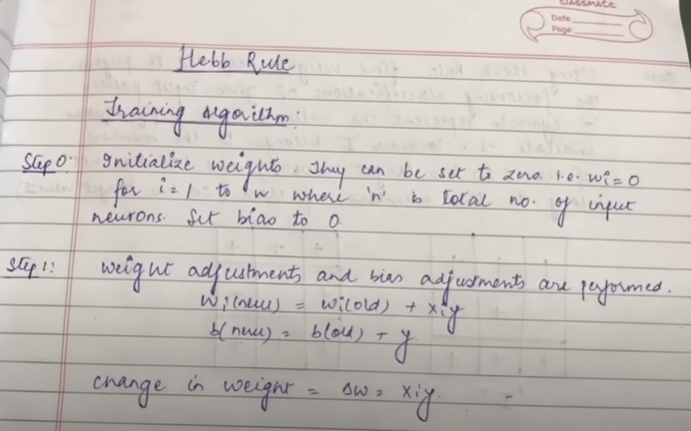 CLASSMATE
Date
Page
Hebb Rule
Training Algorithm:
Step 0: Initialize weights. They can be set to zero i.e. wi = 0
for i = 1 to n where 'n' is total no. of input
neurons. Set bias to 0.
Step 1: Weight adjustments and bias adjustments are performed.
wi(new) = wi(old) + xiy
b(new) = b(old) + y
change in weight = Δw = xiy.